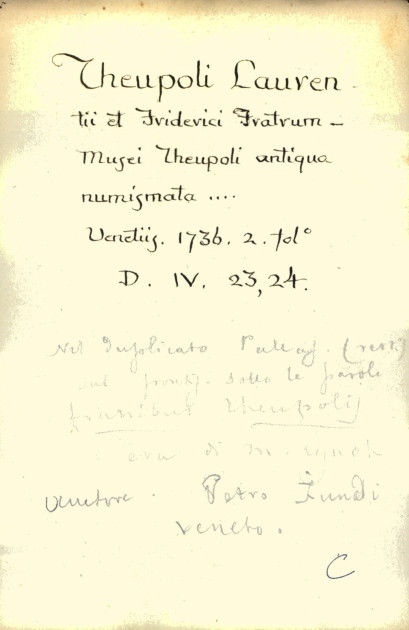 Theupoli Lauren-
tii et Friderici Fratrum -
Musei Theupoli antiqua
numismata ....
Venetiis. 1736. 2. folº
D. IV. 23, 24.
Nel duplicato
sul frontis. sotto le parole
Theupolis
era di
Venetore. Petro Fundi
veneto.
C